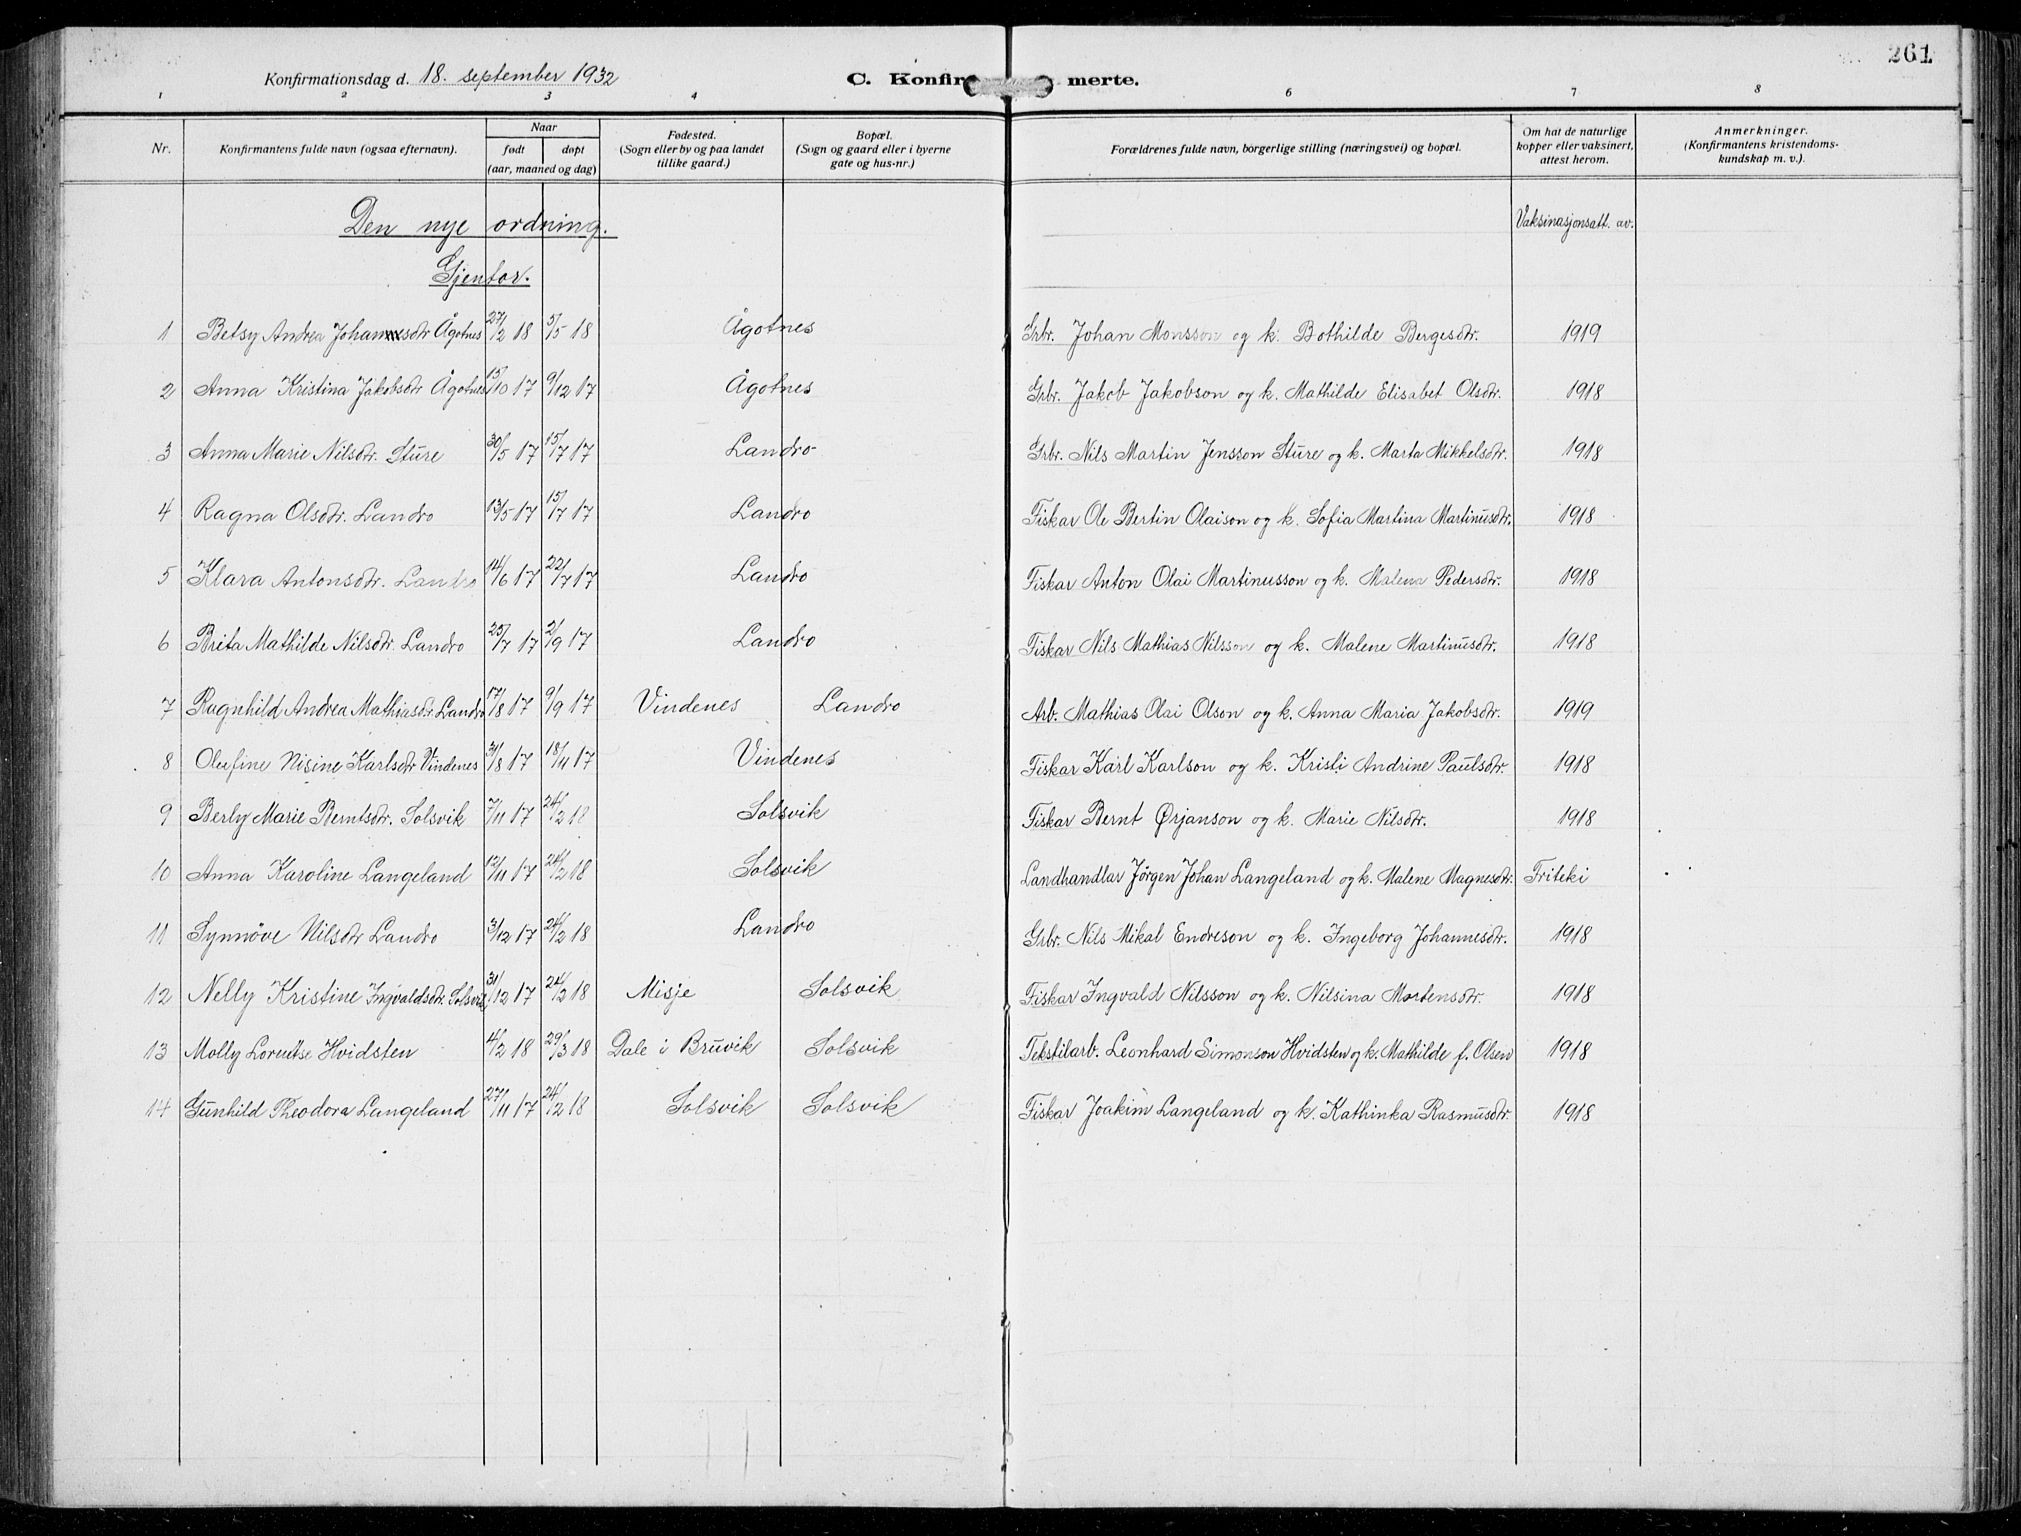 261
Konfirmationsdag d. 18. september 1932 C. Konfir merte.
1 2 3 4 6 7 8
Nr. Konfirmantens fulde navn (ogsaa efternavn). Naar født døpt (aar, maaned og dag) Fødested. (Sogn eller by og paa landet tillike gaard.) Bopæl. (Sogn og gaard eller i byerne gate og hus-nr.) Forældrenes fulde navn, borgerlige stilling (næringsvei) og bopæl. Om hat de naturlige kopper eller vaksinert, attest herom. Anmerkninger. (Konfirmantens kristendoms-kundskap m. v.).
Den nye ordning. Vaksinasjonsatt. av.
Gjentor.
1 Betsy Andrea Johansdtr Ågotnes 27/2 18 5/5 18 Ågotnes Grbr. Johan Monsson og k. Bothilde Bergesdtr. 1919
2 Anna Kristina Jakobsdtr Ågotnes 15/10 17 9/12 17 Ågotnes Grbr. Jakob Jakobson og k. Mathilde Elisabet Olsdtr. 1918
3 Anna Marie Nilsdtr. Sture 30/5 17 15/7 17 Landro Grbr. Nils Martin Jensson Sture og k. Marta Mikkelsdtr. 1918
4 Ragna Olsdtr. Landro 13/5 17 15/7 17 Landro Fiskar Ole Bertin Olaison og k. Sofia Martina Martinusdtr. 1918
5 Klara Antonsdtr. Landro 14/6 17 22/7 17 Landro Fiskar Anton Olai Martinusson og k. Malena Pedersdtr. 1918
6 Brita Mathilde Nilsdtr. Landro 25/7 17 2/9 17 Landro Fiskar Nils Mathias Nilsson og k. Malene Martinusdtr. 1918
7 Ragnhild Andrea Mathiasdtr Landro 17/8 17 9/9 17 Vindenes Landro Arb. Mathias Olai Olson og k. Anna Maria Jakobsdtr. 1919
8 Olufine Nisine Karlsdtr Vindenes 31/8 17 18/11 17 Vindenes Fiskar Karl Karlson og k. Kristi Andrine Paulsdtr. 1918
9 Berly Marie Berntsdtr. Solsvik 7/11 17 24/2 18 Solsvik Fiskar Bernt Ørjanson og k. Marie Nilsdtr. 1918
10 Anna Karoline Langeland 12/11 17 24/2 18 Solsvik Landhandlar Jörgen Johan Langeland og k. Malene Magnesdtr. Friteki
11 Synnöve Nilsdtr Landro 3/12 17 24/2 18 Landro Grbr. Nils Mikal Endreson og k. Ingeborg Johannesdtr. 1918
12 Nelly Kristine Ingvaldsdtr. Solsvik 31/12 17 24/2 18 Misje Solsvik Fiskar Ingvald Nilsson og k. Nilsina Mortensdtr. 1918
13 Molly Lorentse Hvidsten 4/2 18 29/3 18 Dale i Bruvik Solsvik Tekstilarb. Leonhard Simonson Hvidsten og k. Mathilde f. Olsen 1918
14 Gunhild Theodora Langeland 27/11 17 24/2 18 Solsvik Solsvik Fiskar Joakim Langeland og k. Kathinka Rasmusdtr. 1918